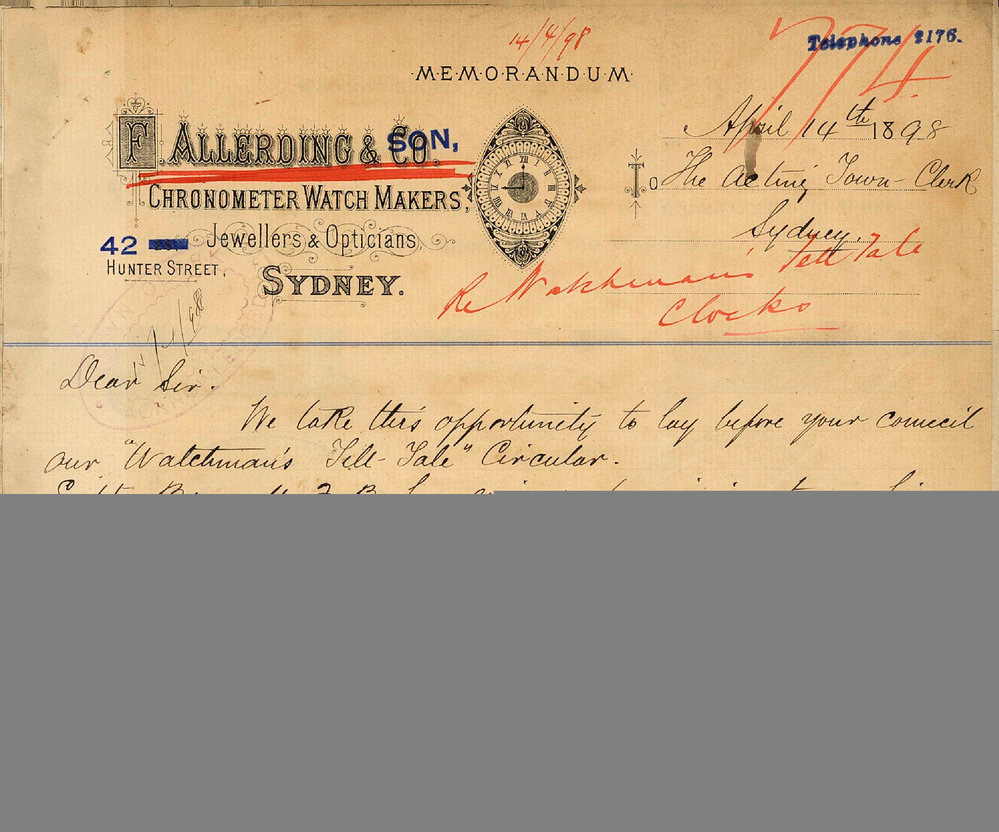 14/4/98
Telephone 2176.
774
MEMORANDUM
April 14th 1898
F. ALLERDING & CO. SON,
CHRONOMETER WATCH MAKERS,
To The Acting Town-Clerk
Sydney.
42
Jewellers & Opticians,
HUNTER STREET,
SYDNEY.
Re Watchman's Tell Tale
Clocks
Dear Sir.
We take this opportunity to lay before your council
our "Watchman's Tell-Tale" Circular.